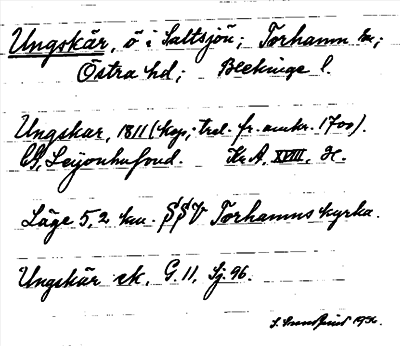 Ungskär, ö i Saltsjön; Torhamn sn;
Östra hd; Blekinge l.
Ungskar, 1811 (kop; trol. fr. omkr. 1700).
G. Leijonhufvud. Kr.A. XVIII, H.
Läge 5,2 km SSV Torhamns kyrka.
Ungskär ek. G. 11, Sj. 96.
1936.